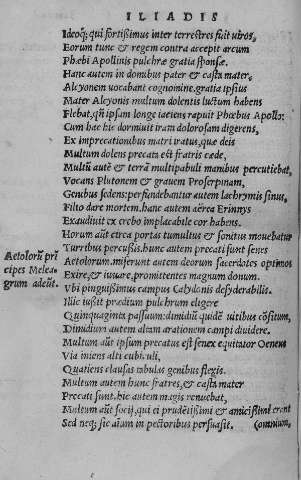 ILIADIS
Ideoq; qui fortissimus inter terrestres fuit uiros,
Eorum tunc & regem contra accepit arcum
Phœbi Apollinis pulchræ gratia sponsæ.
Hanc autem in domibus pater & casta mater,
Alcyonem uocabant cognomine, gratia ipsius
Mater Alcyonis multum dolentis luctum habens
Flebat, qñ ipsam longe iaciens rapuit Phœbus Apollo:
Cum hac hic dormiuit iram dolorosam digerens,
Ex imprecationibus matri iratus, quæ deis
Multum dolens precata est fratris cæde,
Multũ autẽ & terrã multipabuli manibus percutiebat,
Vocans Plutonem & grauem Proserpinam,
Genibus sedens: perfundebantur autem lachrymis sinus,
Filio dare mortem. hanc autem aërea Erinnys
Exaudiuit ex erebo implacabile cor habens.
Horum aũt circa portas tumultus & sonitus mouebatur
Turribus percussis. hunc autem precati sunt senes
Aetolorum. miserunt autem deorum sacerdotes optimos
Aetolorũ pri
cipes Melea
grum adeũt.
Exire, & iuuare, promittentes magnum donum.
Vbi pinguissimus campus Calydonis desyderabilis.
Illic iussit prædium pulchrum eligere
Quinquaginta passuum: dimidiũ quidẽ uitibus cõsitum,
Dimidium autem aliam arationem campi diuidere.
Multum aũt ipsum precatus est senex equitator Oeneus
Via iniens alti cubiculi,
Quatiens clausas tabulas genibus flexis.
Multum autem hunc fratres, & casta mater
Precati sunt. hic autem magis renuebat,
Multum aũt socij, qui ei prudẽtissimi & amicissimi erant
Sed neq; sic aĩum in pectoribus persuasit.